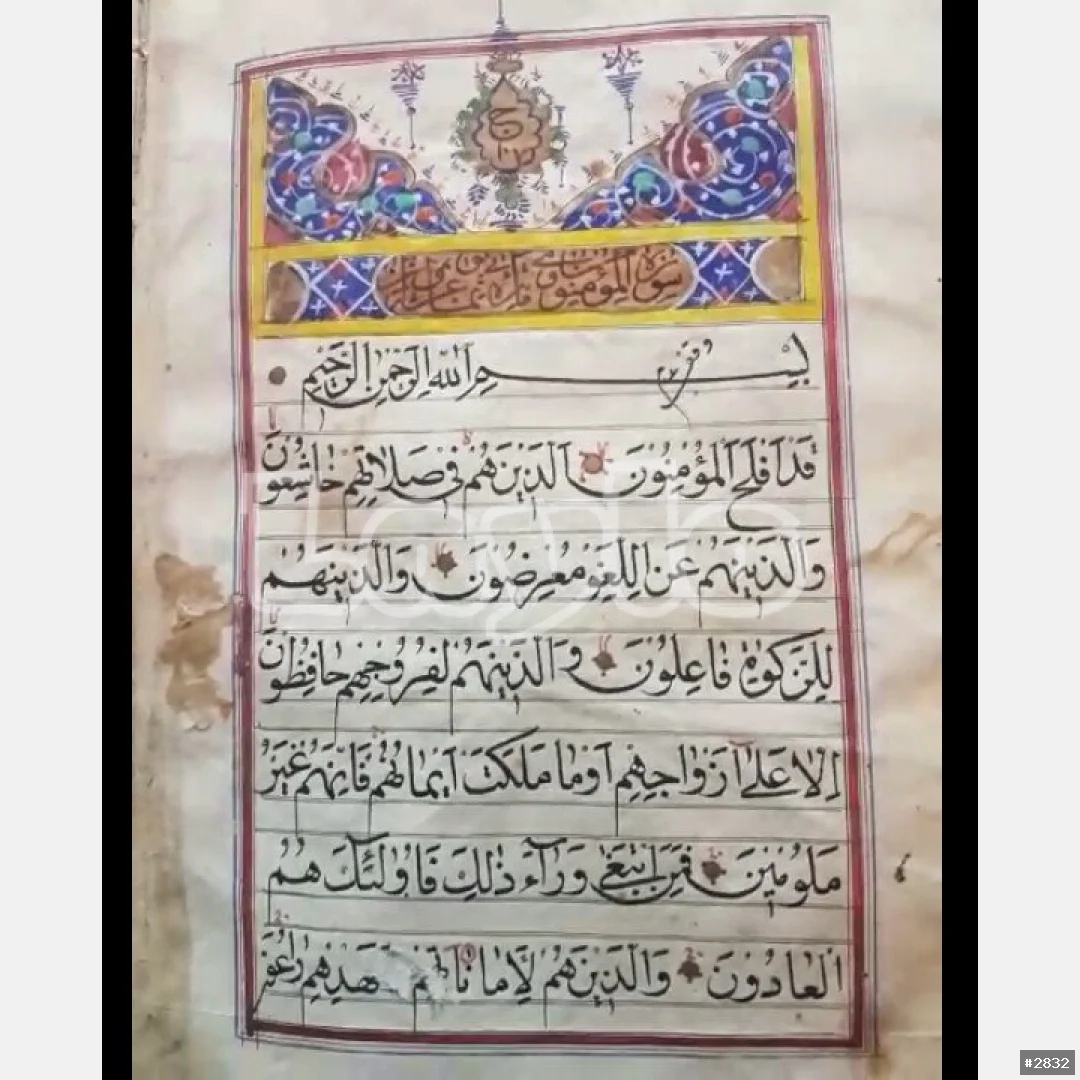 سورة المؤمنون
بسم الله الرحمن الرحيم
قَد أَفْلَحَ المُؤْمِنُونَ الَّذِينَ هُمْ فِى صَلَاتِهِمْ خَاشِعُونَ
وَالَّذِينَهُمْ عَنِ اللَّغْوِ مُعْرِضُونَ وَالَّذِينَهُمْ
لِلزَّكَوٰةِ فَاعِلُونَ وَالَّذِينَهُمْ لِفُرُوجِهِمْ حَافِظُونَ
اِلَّا عَلَىٰ اَزْوَاجِهِمْ اَوْ مَا مَلَكَتْ اَيْمَانُهُمْ فَاِنَّهُمْ غَيْرُ
مَلُومِينَ فَمَنِ ابْتَغَىٰ وَرَآءَ ذٰلِكَ فَاُولٰئِكَ هُمُ
الْعَادُونَ وَالَّذِينَ هُمْ لِاَمَانَاتِهِمْ وَعَهْدِهِمْ رَاعُونَ
#2832